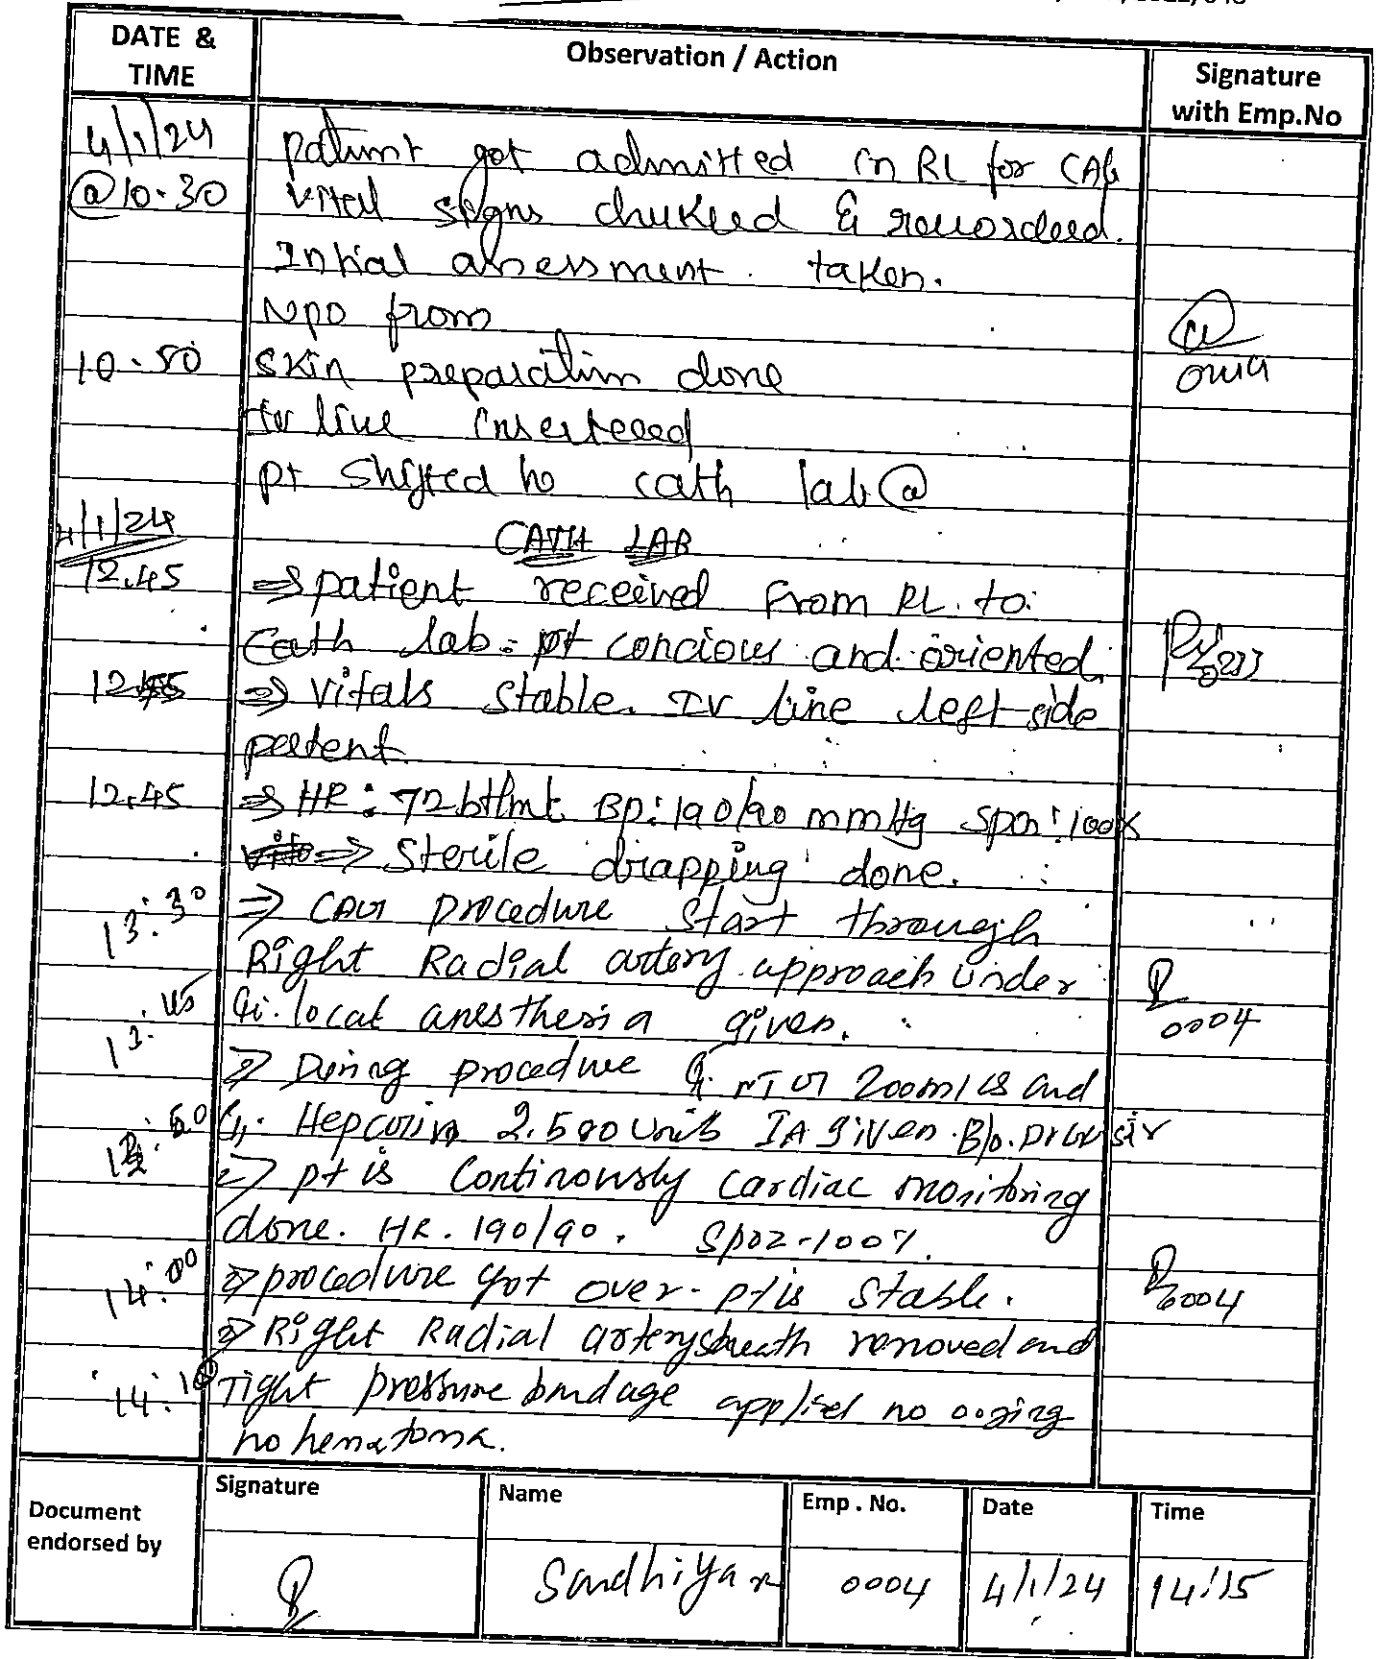 DATE & TIME | Observation / Action | Signature with Emp.No
4/1/24 patient got admitted in RL for CAG
@10.30 vital signs chukeed & recordeed.
Initial assessment. taken.
NPO from
10.50 skin preparation done
line inserteeed
pt shifted to cath lab @
4/1/24 CATH LAB
12.45 ⇒ patient received from RL. to
Cath lab. pt concious and oriented
⇒ Vitals stable. IV line left side
patent
12.45 ⇒ HR: 72 bt/mt BP: 190/90 mmHg SPO2: 100%
⇒ Sterile drapping done.
13:30 ⇒ CAG procedure start through
Right Radial artery approach under 0004
13:45 local anesthesia given.
⇒ During procedure NTG 200 and
Heparin 2,500 units IA given. B/o. sir
⇒ pt is Continously cardiac monitoring
done. HR. 190/90. SpO2-100%.
14:00 ⇒ procedure got over. pt is stable. 0004
⇒ Right Radial artery sheath removed and
14:10 Tight pressure bandage applied no oozing
no hematoma.
Document endorsed by | Signature | Name | Emp . No. | Date | Time
Sandhiya 0004 4/1/24 14:15